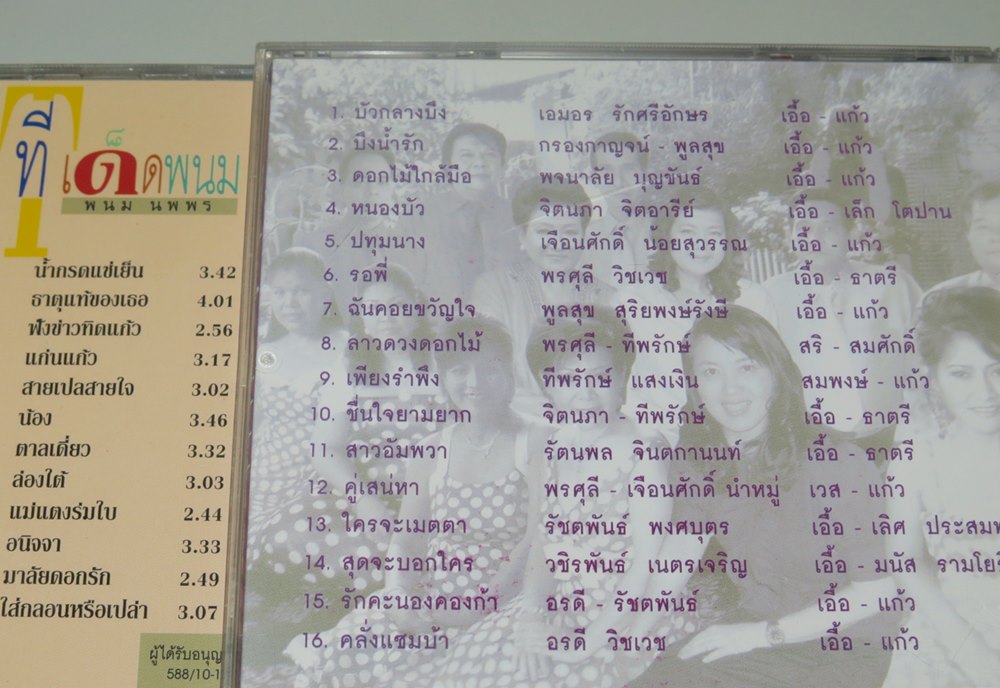 ทีเด็ดพนม
พนม นพพร
น้ำกรดแช่เย็น 3.42
ธาตุแท้ของเธอ 4.01
ฟังข่าวทิดแก้ว 2.56
แก่นแก้ว 3.17
สายเปลสายใจ 3.02
น้อง 3.46
ตาลเดี่ยว 3.32
ล่องใต้ 3.03
แม่แตงร่มใบ 2.44
อนิจจา 3.33
มาลัยดอกรัก 2.49
ใส่กลอนหรือเปล่า 3.07
ผู้ได้รับอนุญ
588/10-1
1. บัวกลางบึง เอมอร รักศรีอักษร เอื้อ - แก้ว
2. บึงน้ำรัก กรองกาญจน์ - พูลสุข เอื้อ - แก้ว
3. ดอกไม้ใกล้มือ พจนาลัย บุญขันธ์ เอื้อ - แก้ว
4. หนองบัว จิตนภา จิตอารีย์ เอื้อ - เล็ก โตปาน
5. ปทุมนาง เจือนศักดิ์ น้อยสุวรรณ เอื้อ - แก้ว
6. รอพี่ พรศุลี วิชเวช เอื้อ - ธาตรี
7. ฉันคอยขวัญใจ พูลสุข สุริยพงษ์รังษี เอื้อ - แก้ว
8. ลาวดวงดอกไม้ พรศุลี - ทีพรักษ์ สริ - สมศักดิ์
9. เพียงรำพึง ทีพรักษ์ แสงเงิน สมพงษ์ - แก้ว
10. ชื่นใจยามยาก จิตนภา - ทีพรักษ์ เอื้อ - ธาตรี
11. สาวอัมพวา รัตนพล จินตกานนท์ เอื้อ - ธาตรี
12. คู่เสน่หา พรศุลี - เจือนศักดิ์ นำหมู่ เวส - แก้ว
13. ใครจะเมตตา รัชตพันธ์ พงศบุตร เอื้อ - เลิศ ประสมท
14. สุดจะบอกใคร วชิรพันธ์ เนตรเจริญ เอื้อ - มนัส รามโยธ
15. รักคะนองคองก้า อรดี - รัชตพันธ์ เอื้อ - แก้ว
16. คลั่งแซมบ้า อรดี วิชเวช เอื้อ - แก้ว